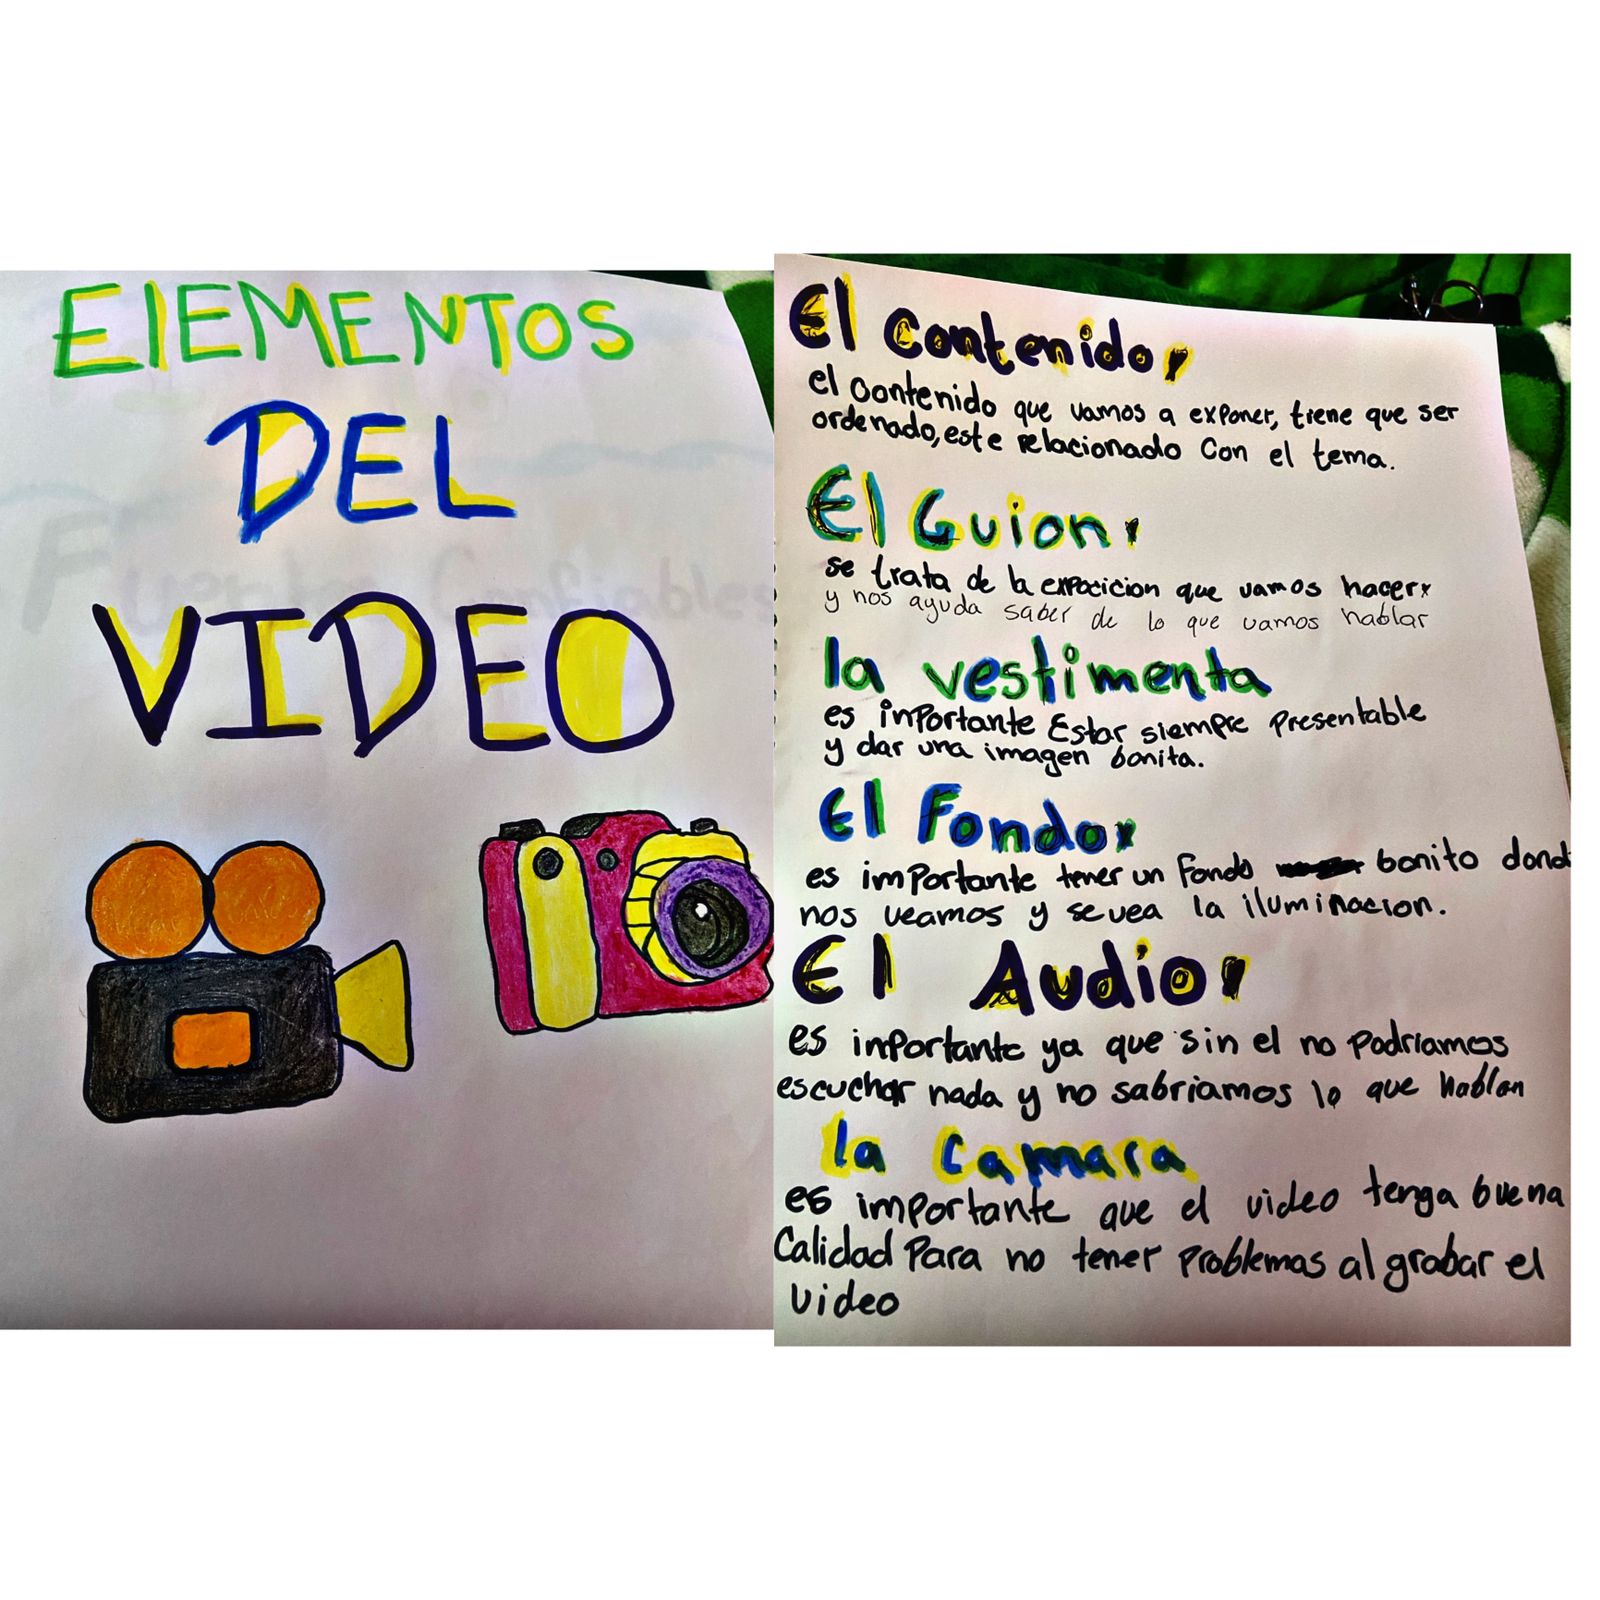 ElEMENTOS
DEL
VIDEO
El Contenido,
el contenido que vamos a exponer, tiene que ser
ordenado, este relacionado Con el tema.
El Guion,
se trata de la expocicion que vamos hacer
y nos ayuda saber de lo que vamos hablar
la vestimenta
es inportante Estar siempre presentable
y dar una imagen bonita.
El Fondo
es importante tener un Fondo bonito dond
nos veamos y se vea la iluminacion.
El Audio,
es inportante ya que sin el no podriamos
escuchar nada y no sabriamos lo que hablan
la Camara
es importante que el video tenga buena
Calidad Para no tener problemas al grabar el
video